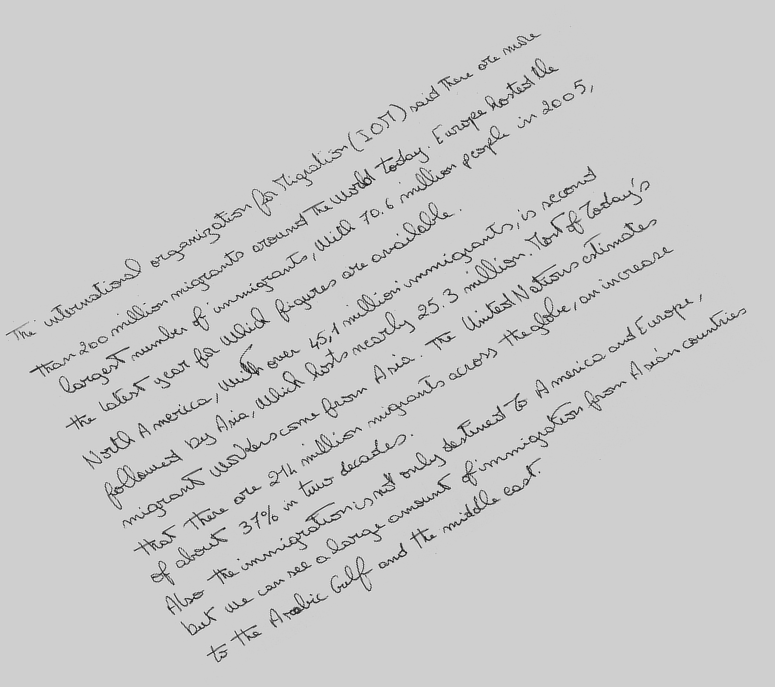 The international organization for Migration (IOM) said There are more
than 200 million migrants around The world today. Europe hosted the
largest number of immigrants, With 70.6 million people in 2005,
the latest year for Which figures are available.
North America, with over 45,1 million immigrants, is second
followed by Asia, Which hosts nearly 25.3 million. Most of Today's
migrant workers come from Asia. The United Nations estimates
that There are 214 million migrants across the globe, an increase
of about 37% in two decades.
Also the immigration is not only destined to America and Europe,
but we can see a large amount of immigration from Asian countries
to the Arabic Gulf and the middle east.